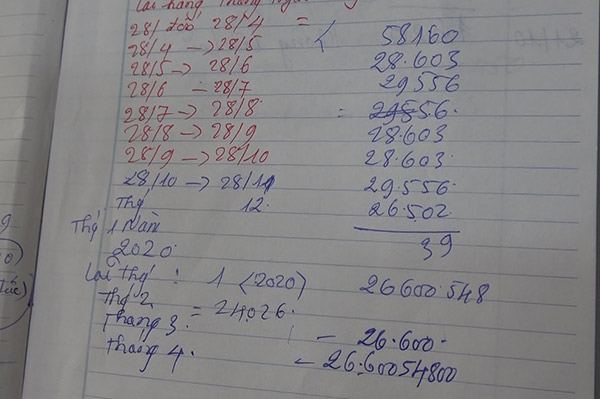 lãi hàng tháng
28/ đến 28/4 =
58160
28/4 -> 28/5
28.603
28/5 -> 28/6
29556
28/6 - 28/7
= 29556.
28/7 -> 28/8
28.603
28/8 -> 28/9
28.603.
28/9 -> 28/10
29.556.
28/10 -> 28/11
26.502.
Thg 12.
39
Thg 1 Năm
2020.
Lãi Thg : 1 (2020) 26600.548
Thg 2 = 24026.
Tháng 3. - 26.600.
Tháng 4. - 26.60054800